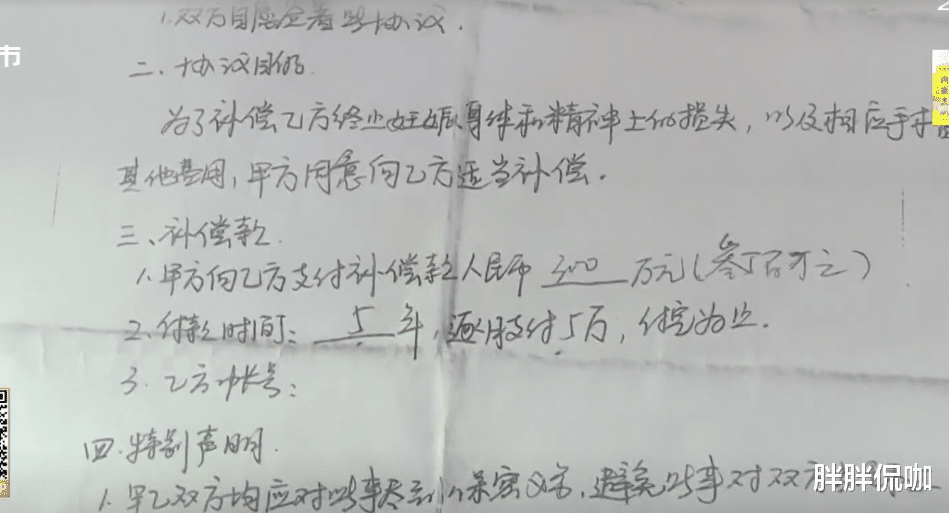 1.双方自愿签署此协议.
二、协议目的.
为了补偿乙方终止妊娠身体和精神上的损失,以及相应手术
其他费用,甲方同意向乙方适当补偿.
三、补偿款.
1.甲方向乙方支付补偿款人民币 300 万元(叁百万元)
2.付款时间: 5 年,逐月支付5万,付完为止.
3.乙方帐号:
四.特别声明.
1.甲乙双方均应对此事尽到保密义务,避免此事对双方
市
胖胖侃咖